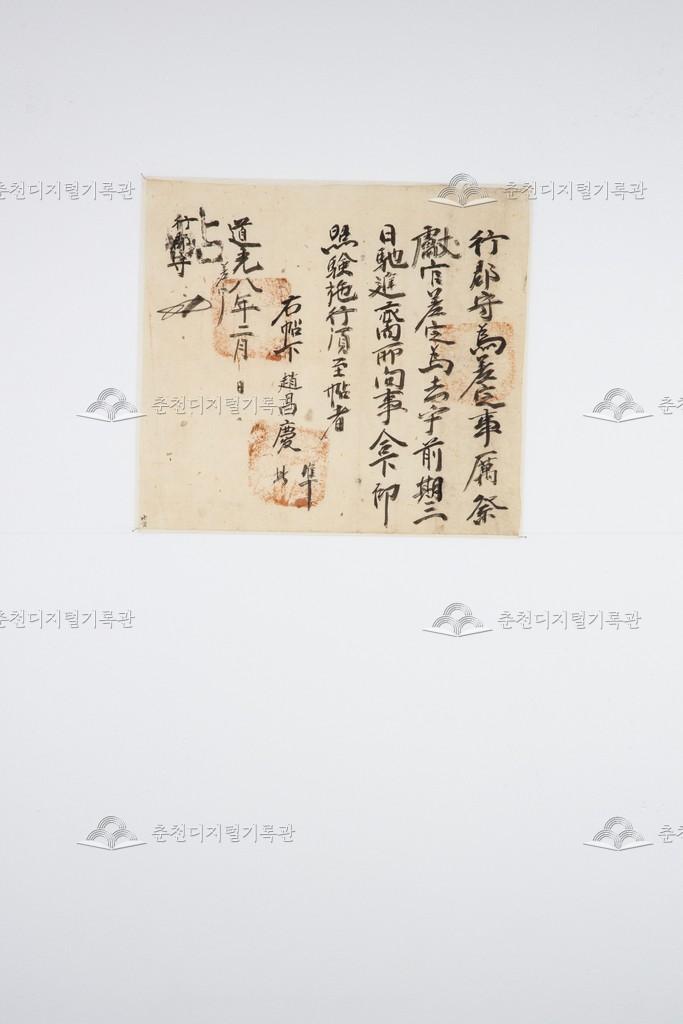 行郡守爲差定事厲祭
獻官差定爲去乎前期三
日馳進齋所向事合下仰
照驗施行須至帖者
右帖下 趙昌慶 準此
道光八年二月 日
差定
帖
行郡守
춘천디지털기록관
춘천디지털기록관
춘천디지털기록관
춘천
춘천디지털기록관
춘천디지털기록관
춘천디지털기록관
춘천